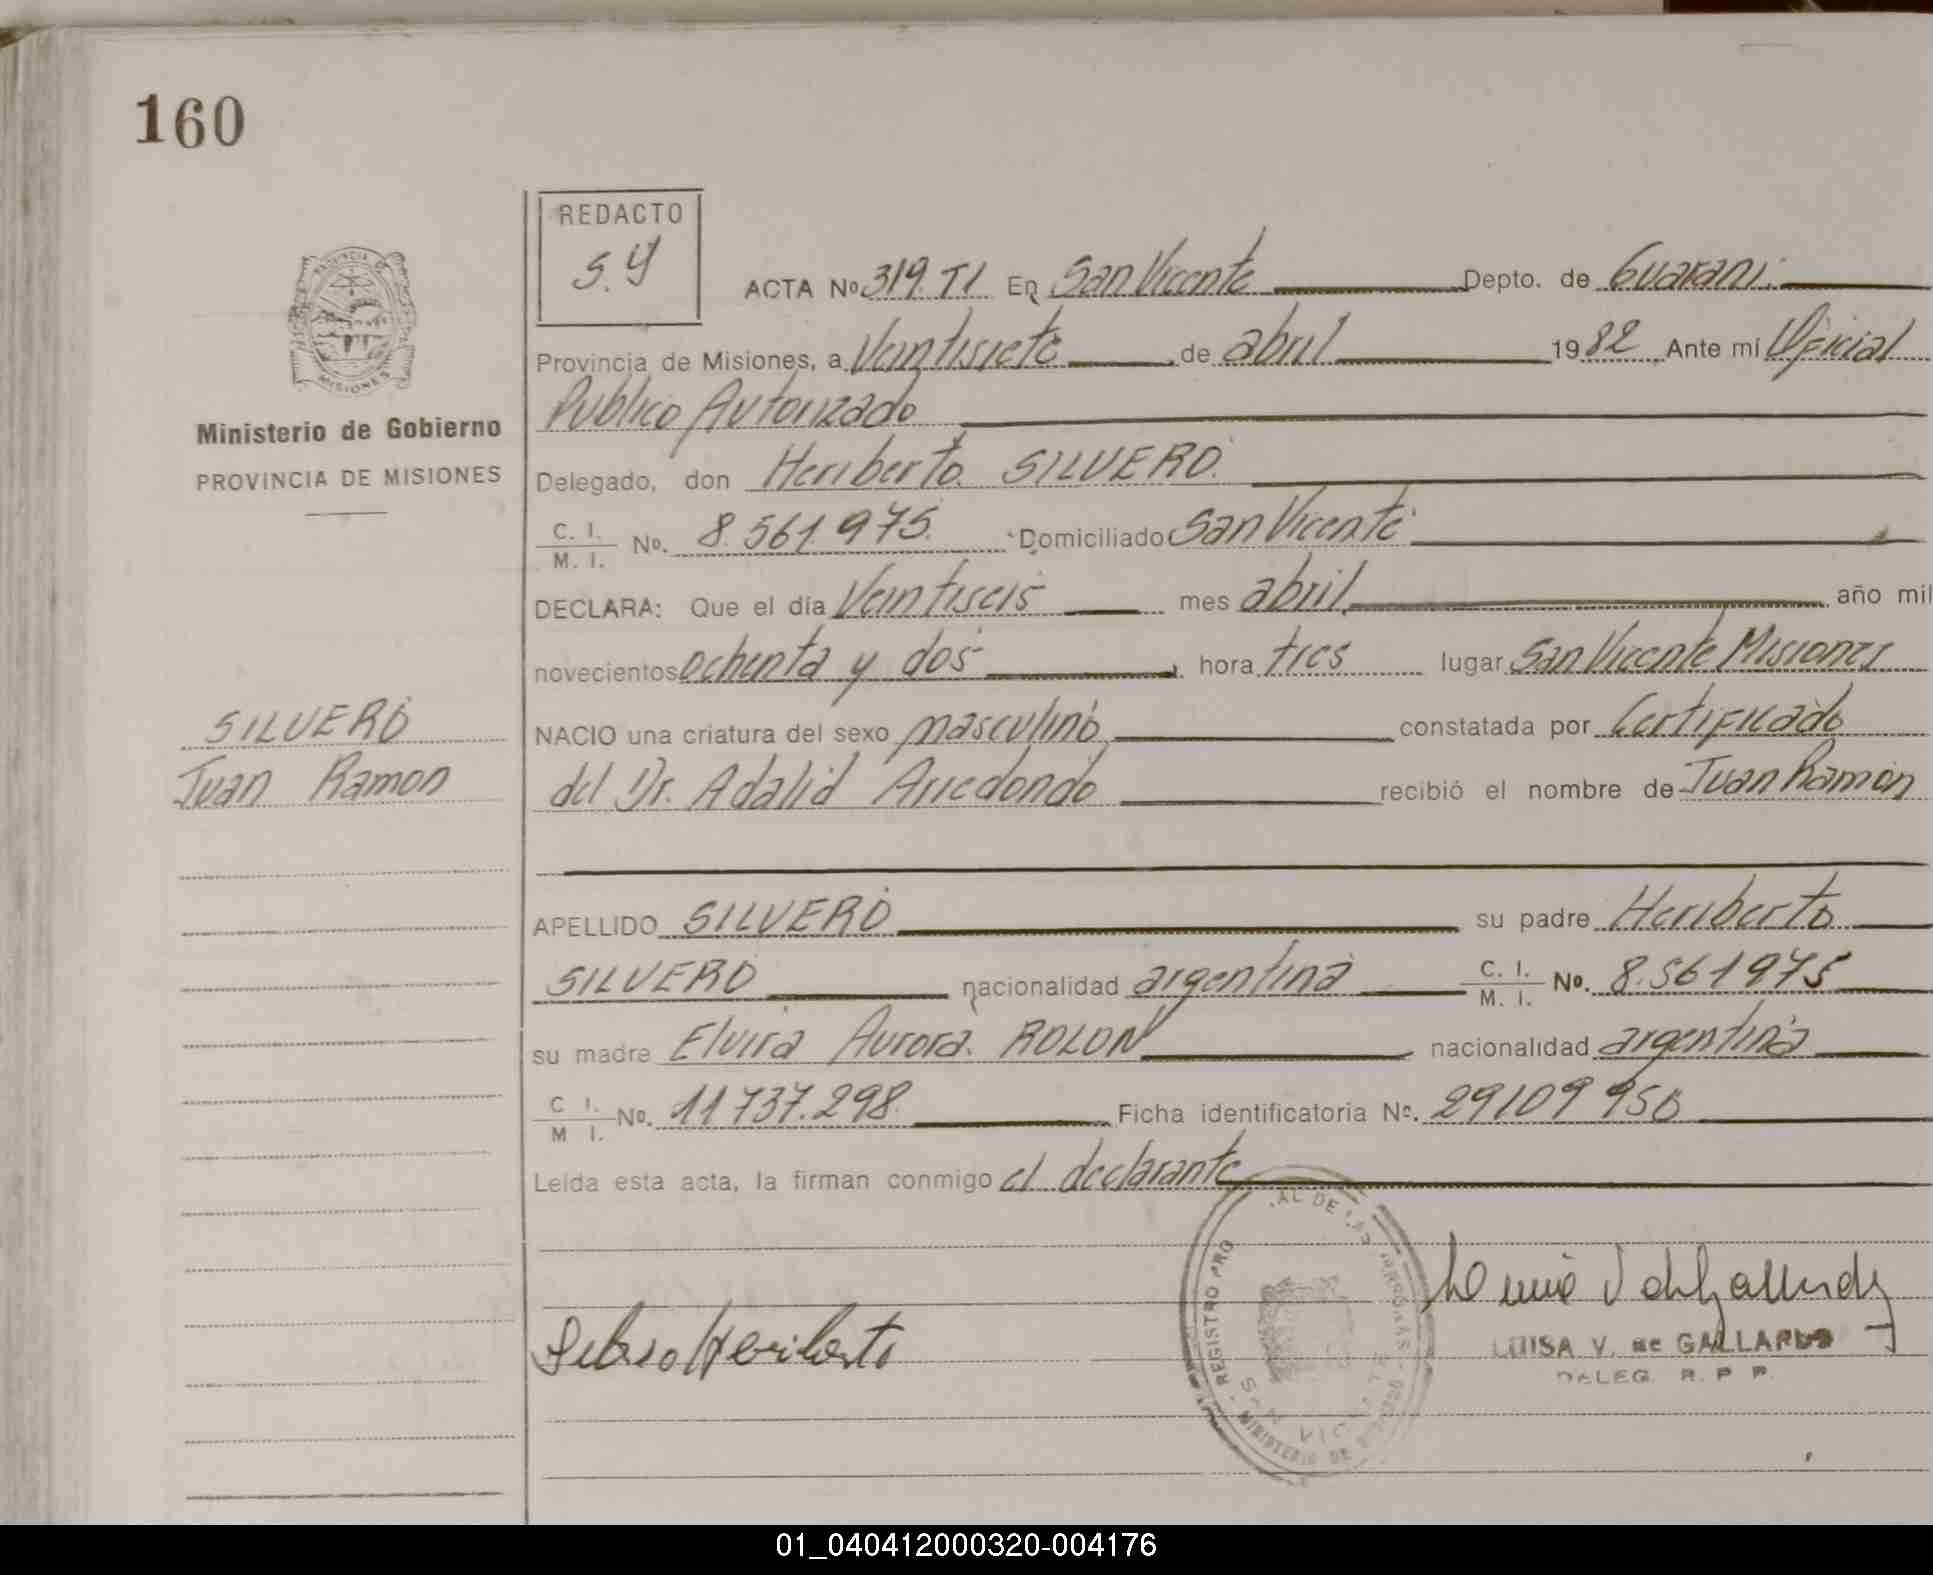 160
REDACTO
S.Y
PROVINCIA DE
MISIONES
Ministerio de Gobierno
PROVINCIA DE MISIONES
ACTA No 319. TI En San Vicente Depto. de Guarani.
Provincia de Misiones, a Veintisiete de abril 1982 Ante mí Oficial
Publico Autorizado
Delegado, don Heriberto. SILVERO.
C. I. / M. I. No. 8.561.975. Domiciliado San Vicente
DECLARA: Que el día Veintiseis mes abril año mil
novecientos ochenta y dos hora tres lugar San Vicente Misiones
NACIO una criatura del sexo masculino constatada por Certificado
del Dr. Adalid Arredondo recibió el nombre de Juan Ramon
SILVERO
Juan Ramon
APELLIDO SILVERO su padre Heriberto
SILVERO nacionalidad argentina C. I. / M. I. No. 8.561975
su madre Elvira Aurora. ROLON nacionalidad argentina
C I. / M I. No. 11737.298. Ficha identificatoria No. 29109950
Leída esta acta, la firman conmigo el declarante
REGISTRO PRO AL DE LAS PERSONAS
MINISTERIO DE
SAN VICENTE
Silvero Heriberto
LUISA V. de GALLARDO
DELEG. R. P. P.
01_040412000320-004176